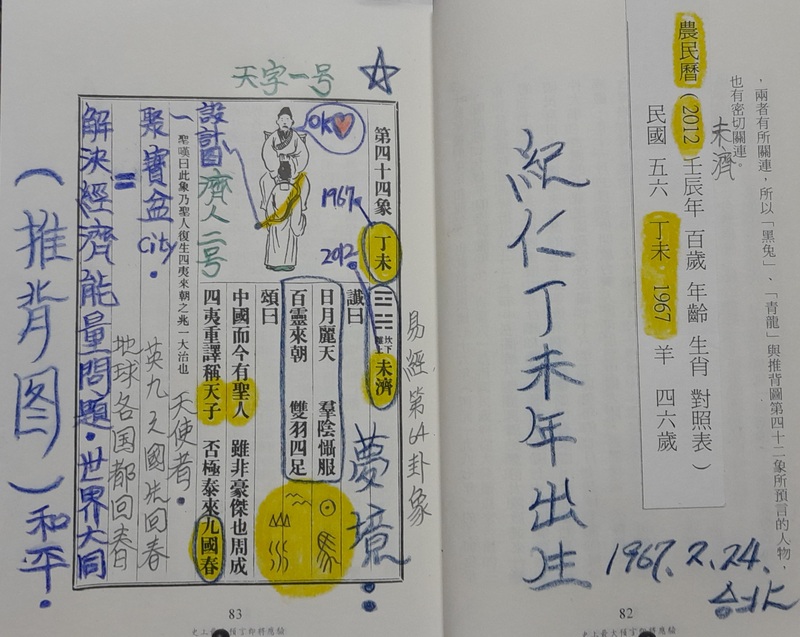 ，兩者有所關連，所以「黑兔」、「青龍」與推背圖第四十二象所預言的人物，
也有密切關連。
未濟
農民曆（2012 壬辰年 百歲 年齡 生肖 對照表）
民國 五六 丁未 1967 羊 四六歲
紀仁丁未年出生
1967. 2. 24.
82
史上最大預言即將應驗
天字一号
OK
第四十四象 丁未 坎下離上 未濟
1967
2012
易經第64卦象
讖曰
日月麗天 羣陰懾服
百靈來朝 雙羽四足
夢境
頌曰
中國而今有聖人 雖非豪傑也周成
四夷重譯稱天子 否極泰來九國春
設計图
濟人二号
聖嘆曰此象乃聖人復生四夷來朝之兆一大治也
天使者
聚寶盆city
英九之國先回春
地球各国都回春
解決經濟能量問題．世界大同
（推背图）和平
83
史上最大預言即將應驗